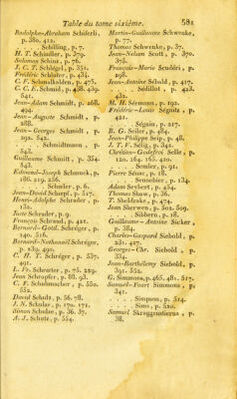 Table du tome sixième. 581
Rodolphe-Abraham Schiferli,
p. 380, 412.
Schilling, p. 7.
H. T. Schindler, p. 379.
Salomon Schinz, p. 76.
J. C. T. Schlégel, p. 351.
Frédéric Schluter, p. 434.
C. F. Schmalkalden, p. 475.
C. C. E. Schmid, p. 438, 439,
541.
Jean-Adam Schmidt, p. 268,
499.
Jean-Auguste Schmidt, p.
288.
Jean-Georges Schmidt, p.
292. 542.
Schmidtmann, p.
543.
Guillaume Schmitt, p. 354
543.
Edmond-Joseph Schmuck, p.
186. 219. 256.
Schnler, p. 6.
Jean-David Schoepf, p. 517.
Henri-Adolphe Schrader, p.
132.
Juste Schrader, p. 9.
François Schraud, p. 421.
Bernard-Gottl. Schréger, p.
140. 516.
Bernard-Nathanaël Schréger,
p. 239, 490.
C. H. T. Schréger, p. 537.
491.
L. Fr. Schrœter, p. 75. 229.
Jean Schroepfer, p. 88. 93.
C. F. Schuhmacher, p. 550.
552.
David Schulz, p. 56. 78.
J. N. Schulze, p. 170. 171.
Simon Schulze, p. 36. 37.
A. J. Schutz, p. 554.
Martin-Guillaume Schwenke,
p. 77.
Thomas Schwenke, p. 37.
Jean-Nelson Scott, p. 370.
378.
François-Marie Scudéri, p.
298.
Jean-Antoine Sébald, p. 417.
Sédillot, p. 423.
432.
M. H. Séemann, p. 192.
Frédéric-Louis Séguitz, p.
421.
Séguin, p. 217.
B. G. Seiler, p. 484.
Jean-Philippe Seip, p. 48.
J. T. F. Sélig, p. 341.
Chrétien-Godefroi Selle, p.
120. 164. 165. 420.
Semler, p. 91.
Pierre Sénac, p. 18.
Sennebier, p. 134.
Adam Seybert, p. 434.
Thomas Shaw, p. 36.
T. Sheldrake, p. 474.
Jean Sherwen, p. 302. 509.
Sibbern, p. 18.
Guillaume-Antoine Sicker,
p. 384.
Charles-Gaspard Siebold, p.
231. 427.
Georges-Chr. Siebold, p.
334.
Jean-Barthélemy Siebold, p.
391. 552.
G. Simmons, p. 465. 481. 517.
Samuel-Foart Simmons, p.
341.
Simpson, p. 514.
Sims, p. 320.
Samuel Skraggenstierna, p.
38.